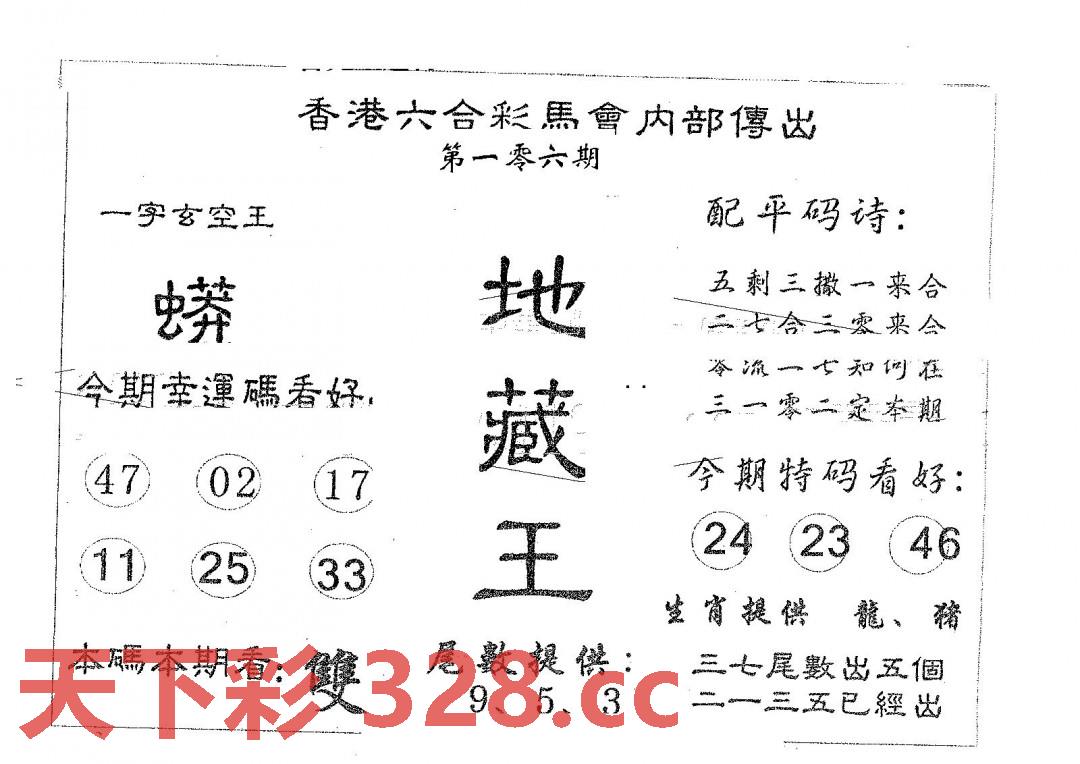 香港六合彩馬會内部傳出
第一零六期
一字玄空王
蟒
今期幸運碼看好
47 02 17
11 25 33
本碼本期看: 雙
地藏王
尾數提供:
9、5、3
配平码诗:
五剩三撒一来合
二七合三零来合
零流一七知何在
三一零二定本期
今期特码看好:
24 23 46
生肖提供 龍、猪
三七尾數出五個
二一三五已經出
天下彩 328.cc